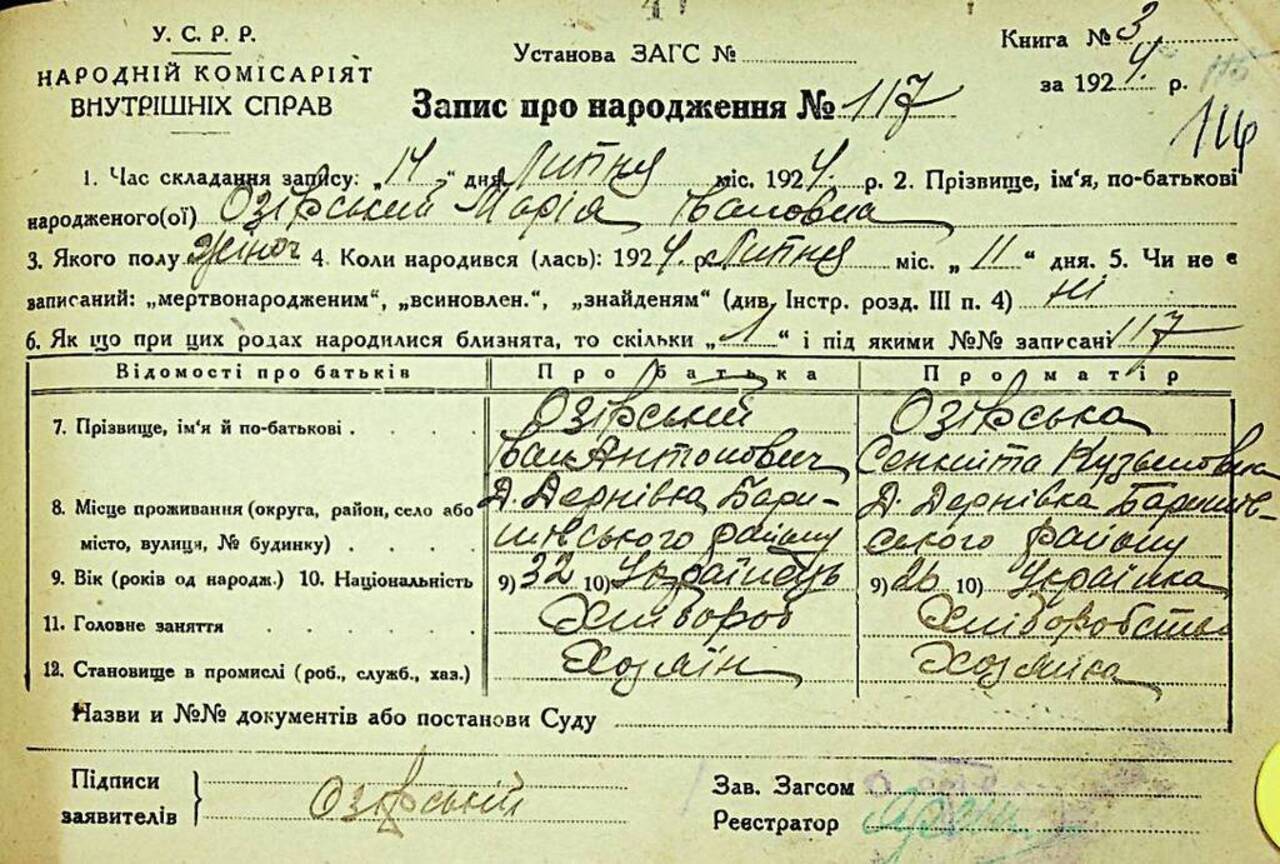 У. С. Р. Р.
НАРОДНІЙ КОМІСАРІЯТ
ВНУТРІШНІХ СПРАВ
Установа ЗАГС №
Книга № 3
за 1924 р.
Запис про народження № 117
116
1. Час складання запису: „14“ дня Липня міс. 1924. р. 2. Прізвище, ім'я, по-батькові
народженого(ої) Озірський Марія Івановна
3. Якого полу жіноч 4. Коли народився (лась): 1924. р. Липня міс. „11“ дня. 5. Чи не є
записаний: „мертвонародженим“, „всиновлен.“, „знайденям“ (див. Інстр. розд. III п. 4) Ні
6. Як що при цих родах народилися близнята, то скільки „1“ і під якими №№ записані 117
Відомості про батьків Про батька Про матір
7. Прізвище, ім'я й по-батькові Озірський Озірська
Іван Антонович Кузьмовна
8. Місце проживання (округа, район, село або Д. Дернівка Бари- Д. Дернівка Баришів-
місто, вулиця, № будинку) шівського району ського району
9. Вік (років од народж.) 10. Національність 9) 32 10) Українець 9) 26 10) Українка
11. Головне заняття Хлібороб Хліборобство
12. Становище в промислі (роб., служб., хаз.) Хозяїн Хозяйка
Назви и №№ документів або постанови Суду
Підписи
заявителів
Озірський
Зав. Загсом
Реєстратор